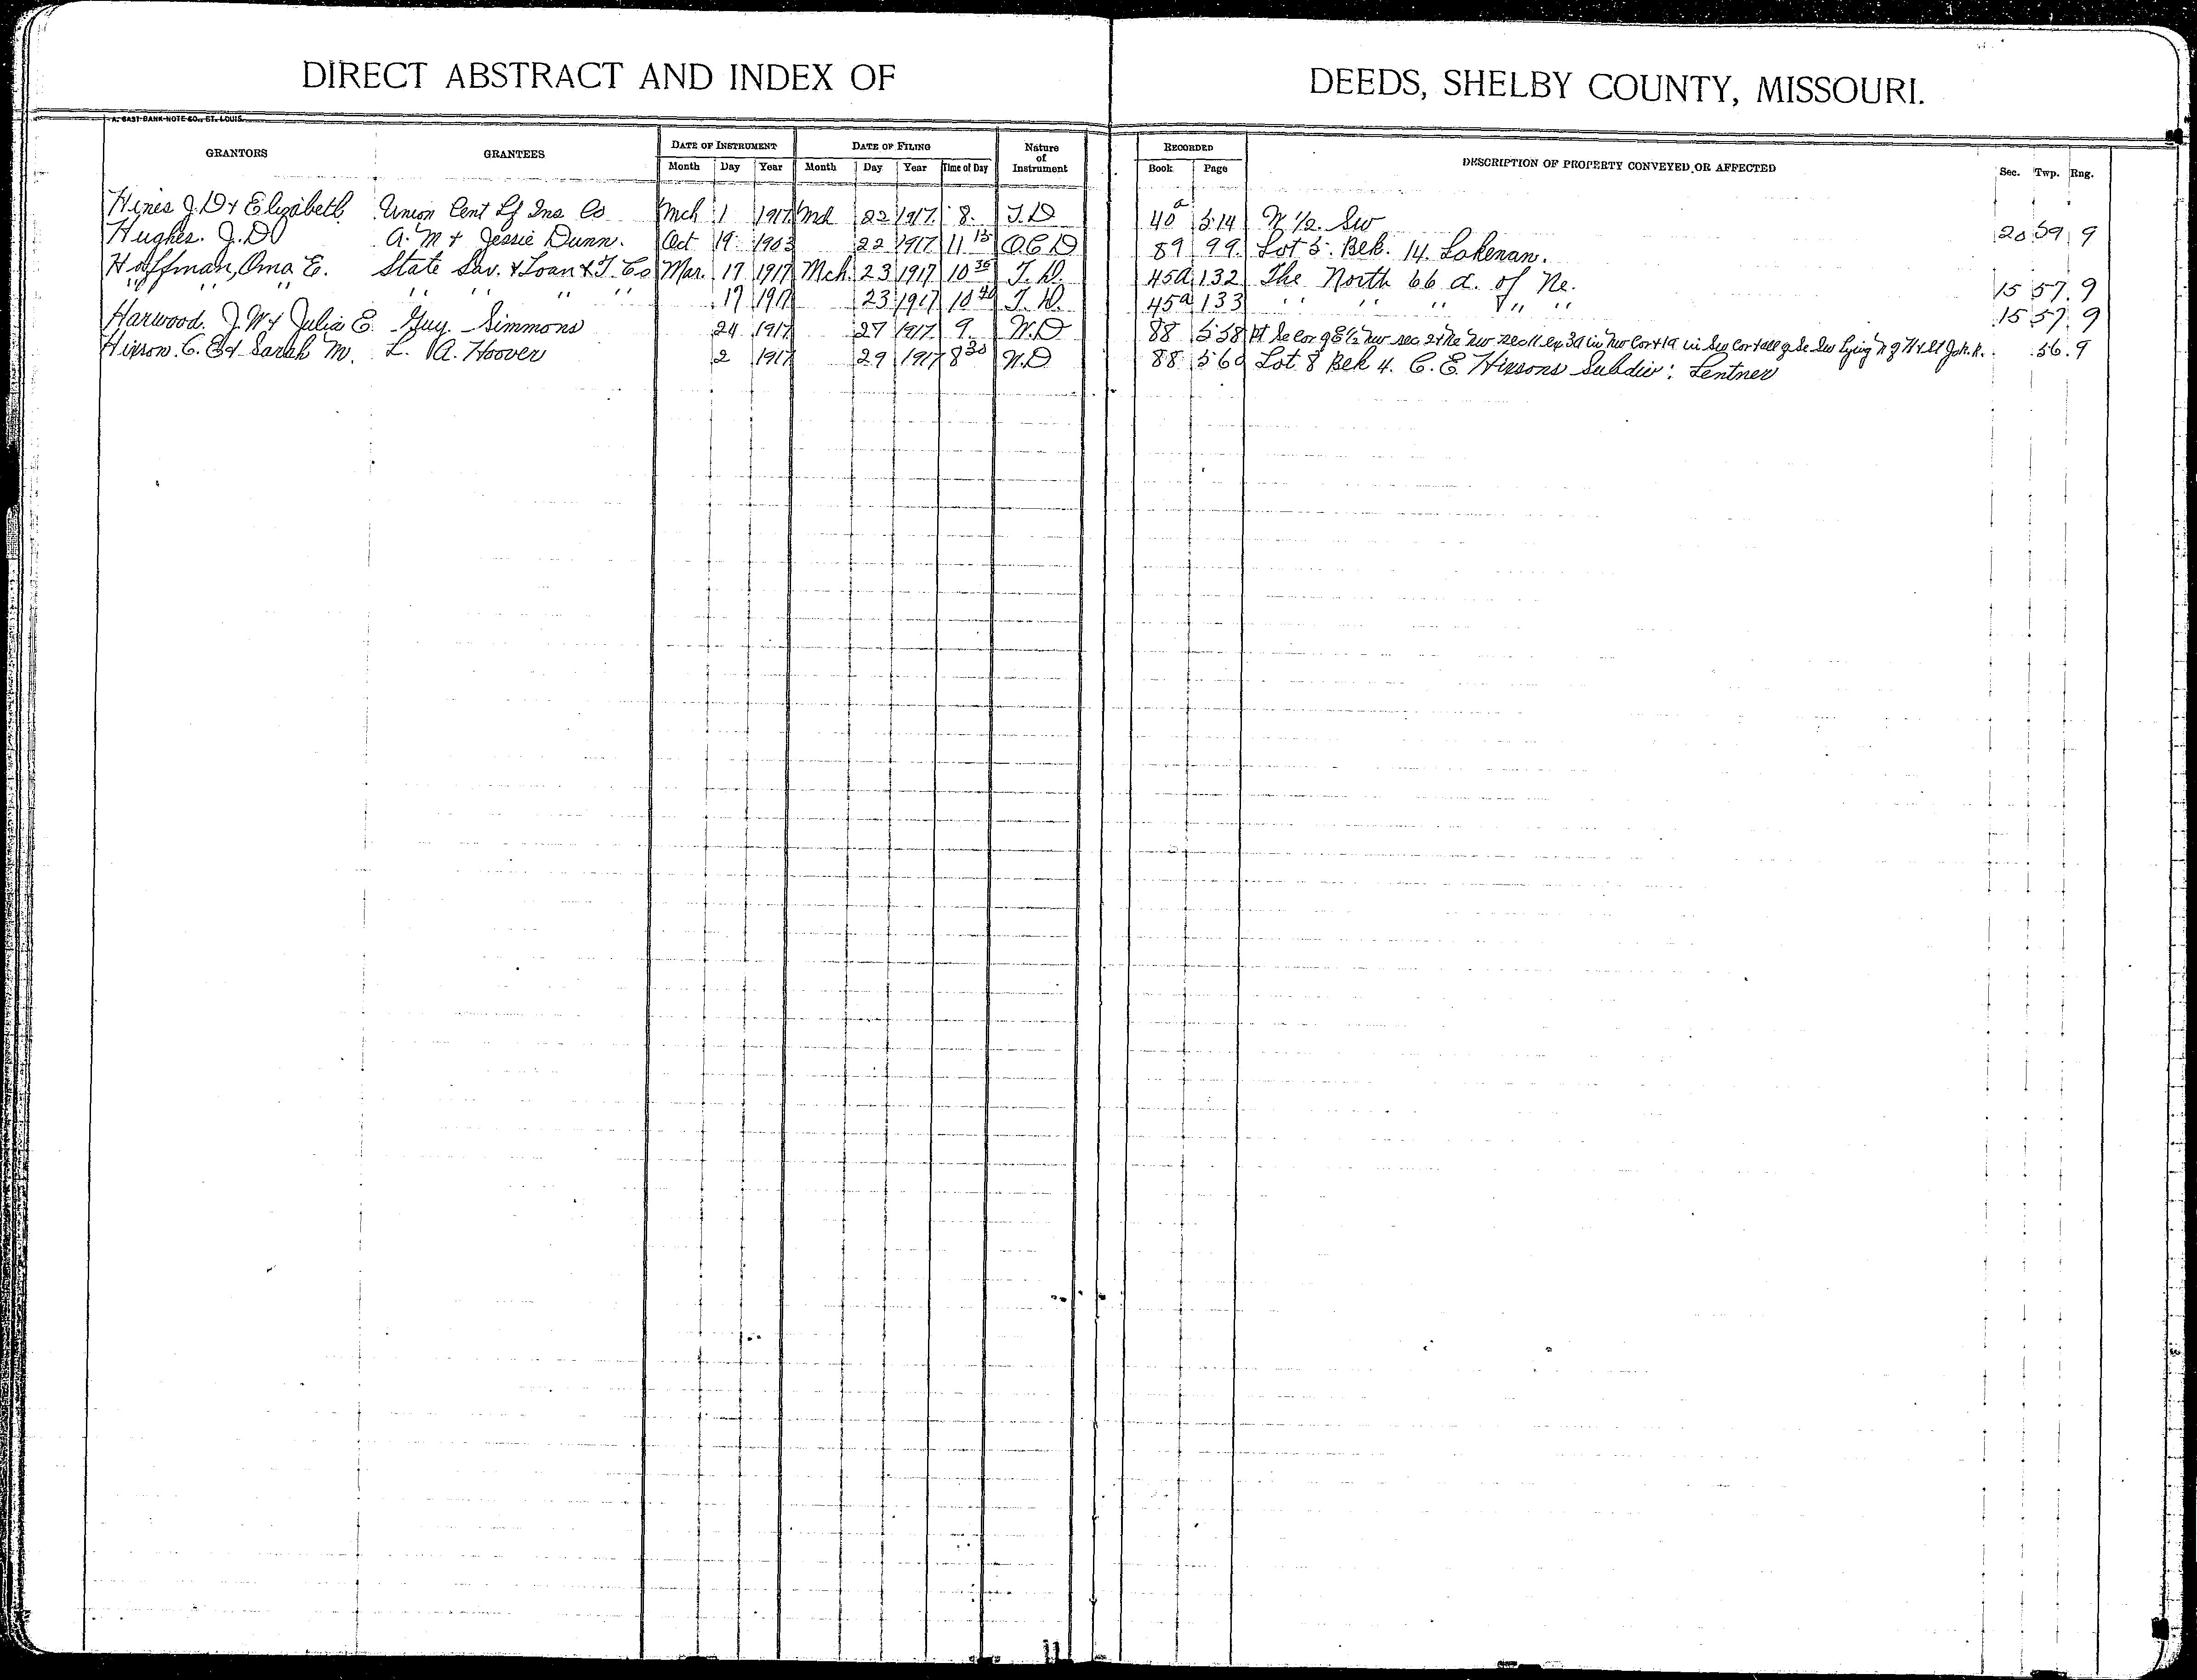 DIRECT ABSTRACT AND INDEX OF DEEDS, SHELBY COUNTY, MISSOURI.
A. GAST BANK NOTE CO., ST. LOUIS.
GRANTORS GRANTEES DATE OF INSTRUMENT DATE OF FILING Nature of Instrument RECORDED DESCRIPTION OF PROPERTY CONVEYED OR AFFECTED Sec. Twp. Rng.
Month Day Year Month Day Year Time of Day Book Page
Hines J. D & Elizabeth Union Cent Lf Ins Co Mch 1 1917 Mch 22 1917 8. T.D 40a 514 N 1/2. Sw 20 59 9
Hughes. J. D A. M & Jessie Dunn. Oct 19 1903 22 1917 11 15 Q C D 89 99. Lot 5. Blk. 14. Lakenan.
Hoffman, Oma E. State Sav. & Loan & T. Co Mar. 17 1917 Mch. 23 1917 10 35 T. D. 45a 132 The North 66 a. of Ne. 15 57. 9
" " " " " " " 17 1917 23 1917 10 40 T. D. 45a 133 " " " " " 15 57. 9
Harwood. J. W & Julia E. Guy. Simmons 24 1917 27 1917. 9. W.D 88 558 Pt Se Cor of E 1/2 Nw sec 2 & Ne Nw sec 11 ex 3a in Nw Cor & 1a in Sw Cor & all of Se Sw lying N of H & St Jo R. R. 56. 9
Hixson. C. E & Sarah M. L. A. Hoover 2 1917 29 1917 8 30 W.D 88 560 Lot. 8 Blk 4. C. E. Hixsons Subdiv: Lentner